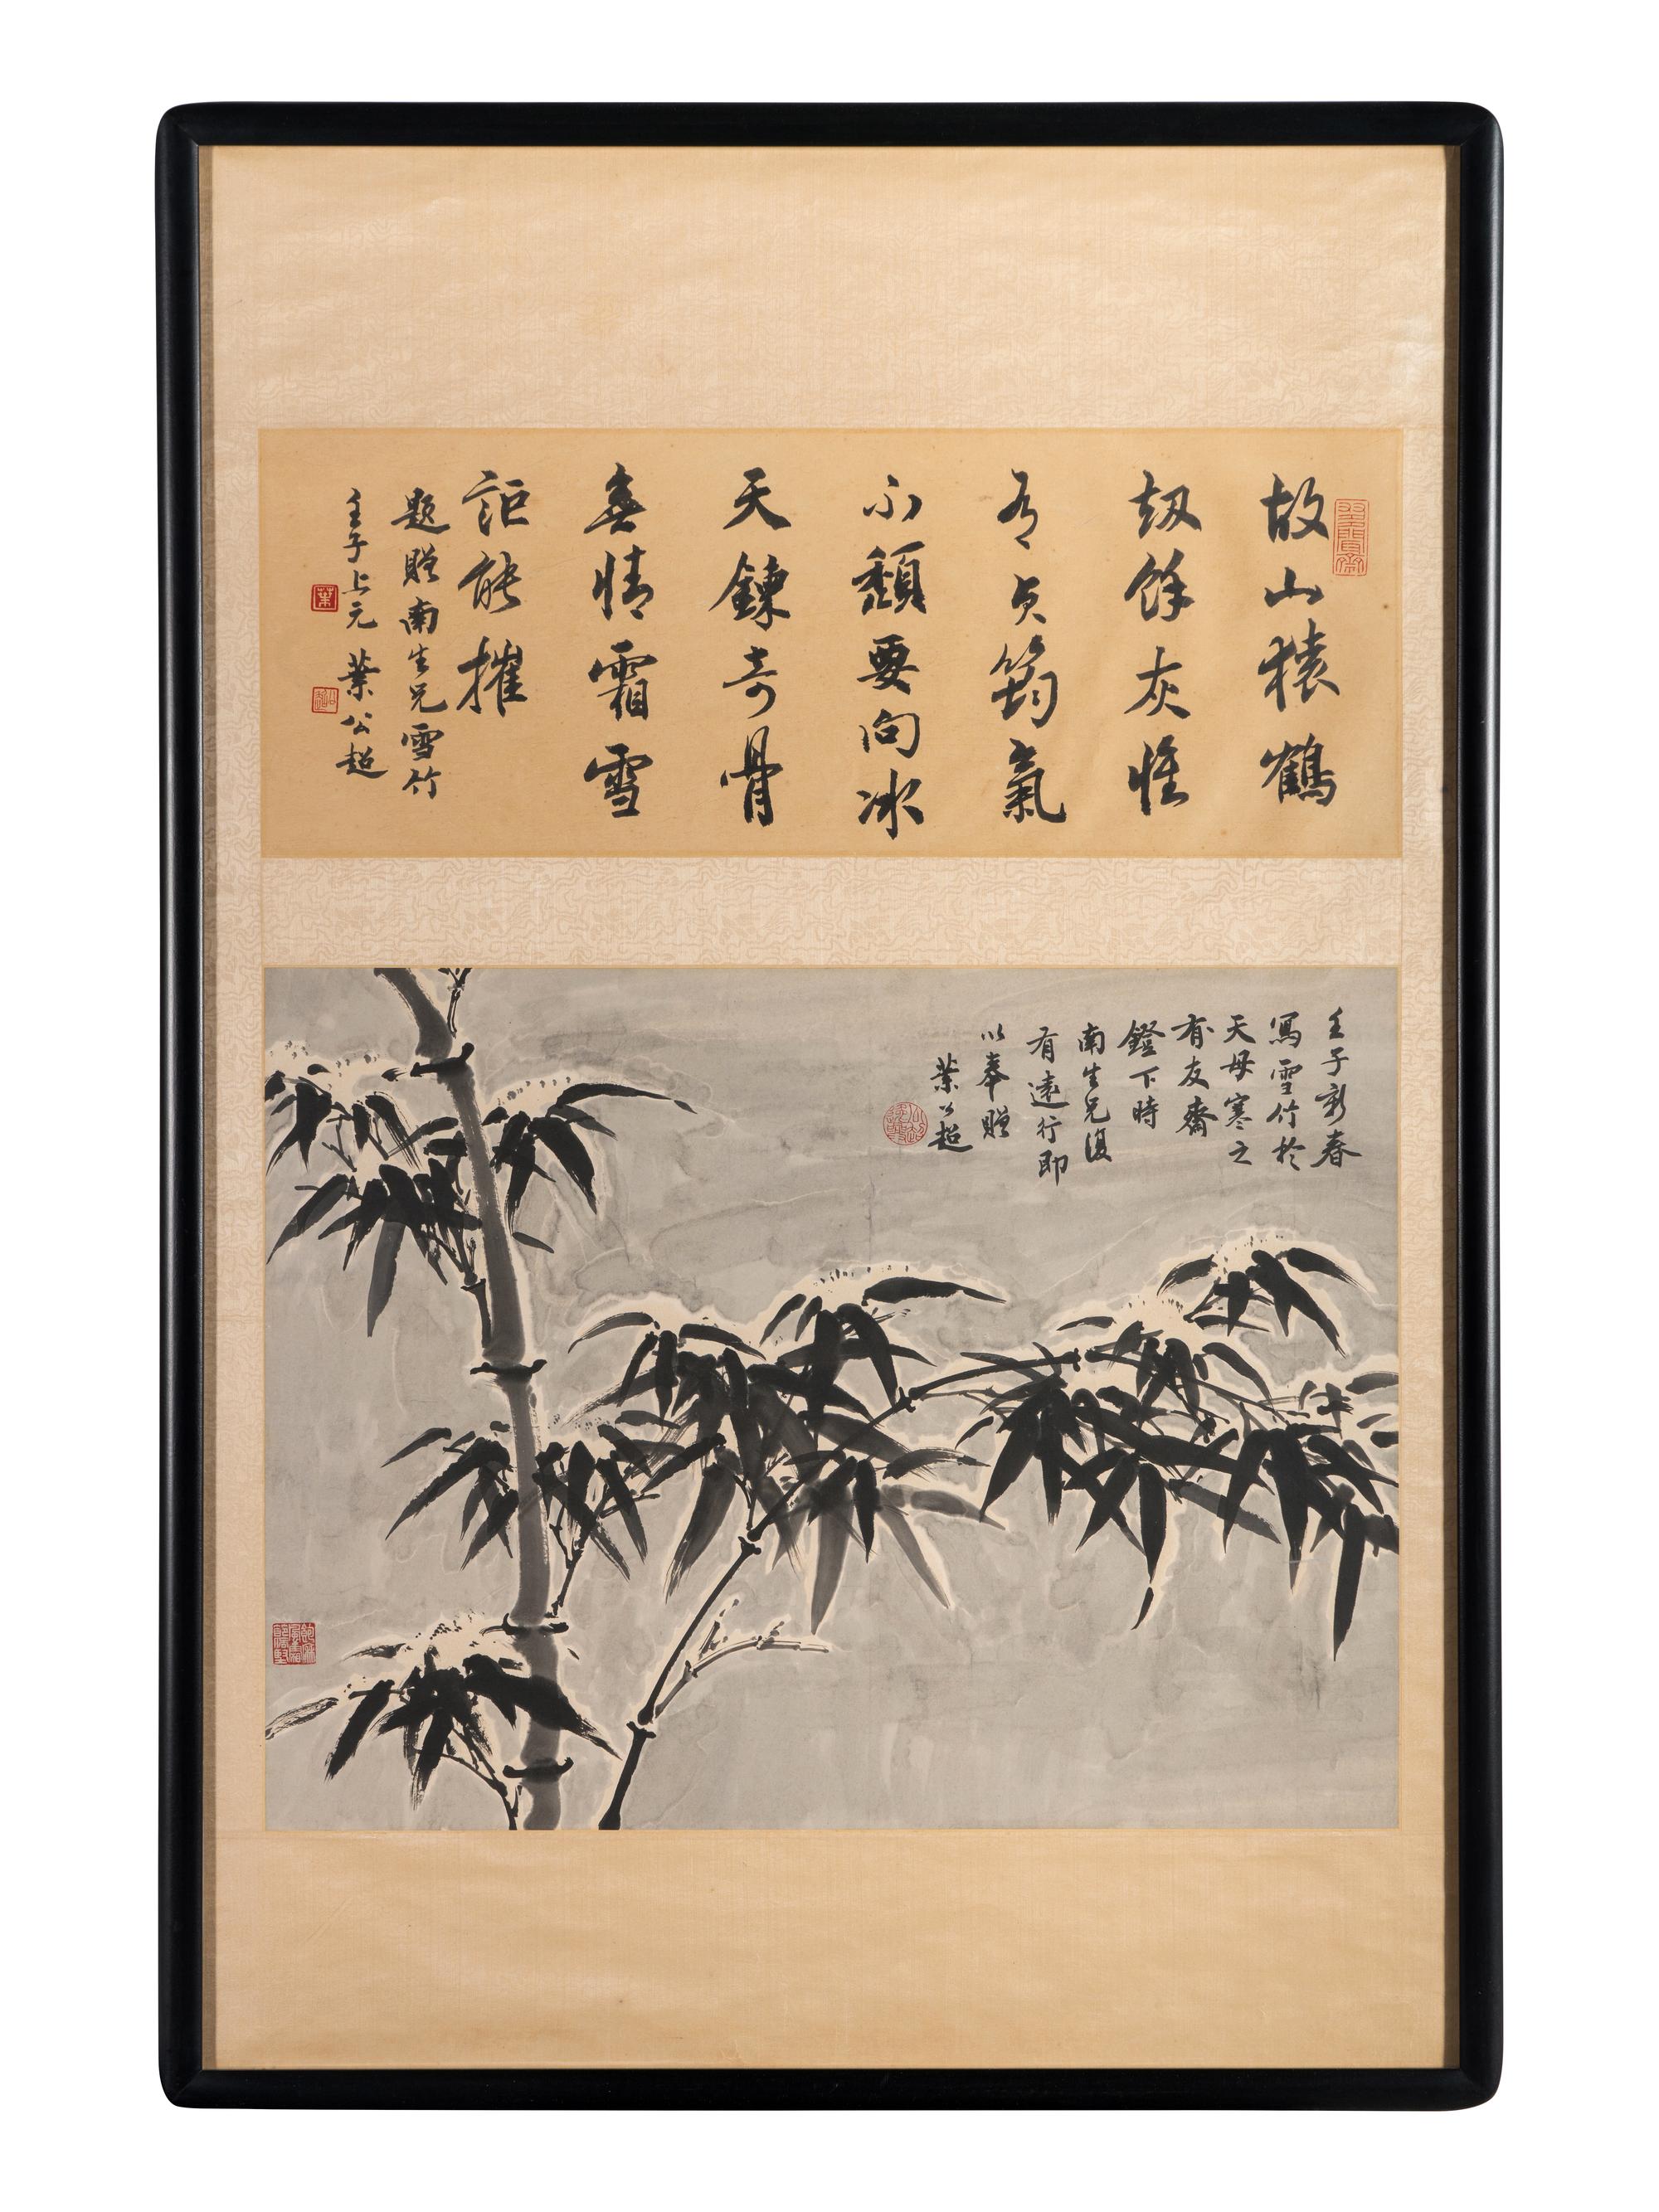 故山猿鶴
刼餘灰惟
有貞筠氣
不頹要向冰
天鍊奇骨
無情霜雪
詎能摧
題贈南生兄雪竹
壬子上元 葉公超
葉
壬子新春
寫雪竹於
天母寒之
有友齋
鐙下時
南生兄復
有遠行即
以奉贈
葉公超